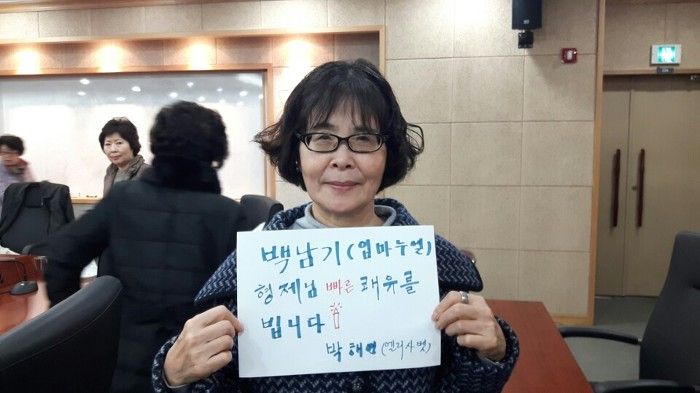 백남기(임마누엘)
형제님 빠른 쾌유를
빕니다
박해 (엘리사벳)